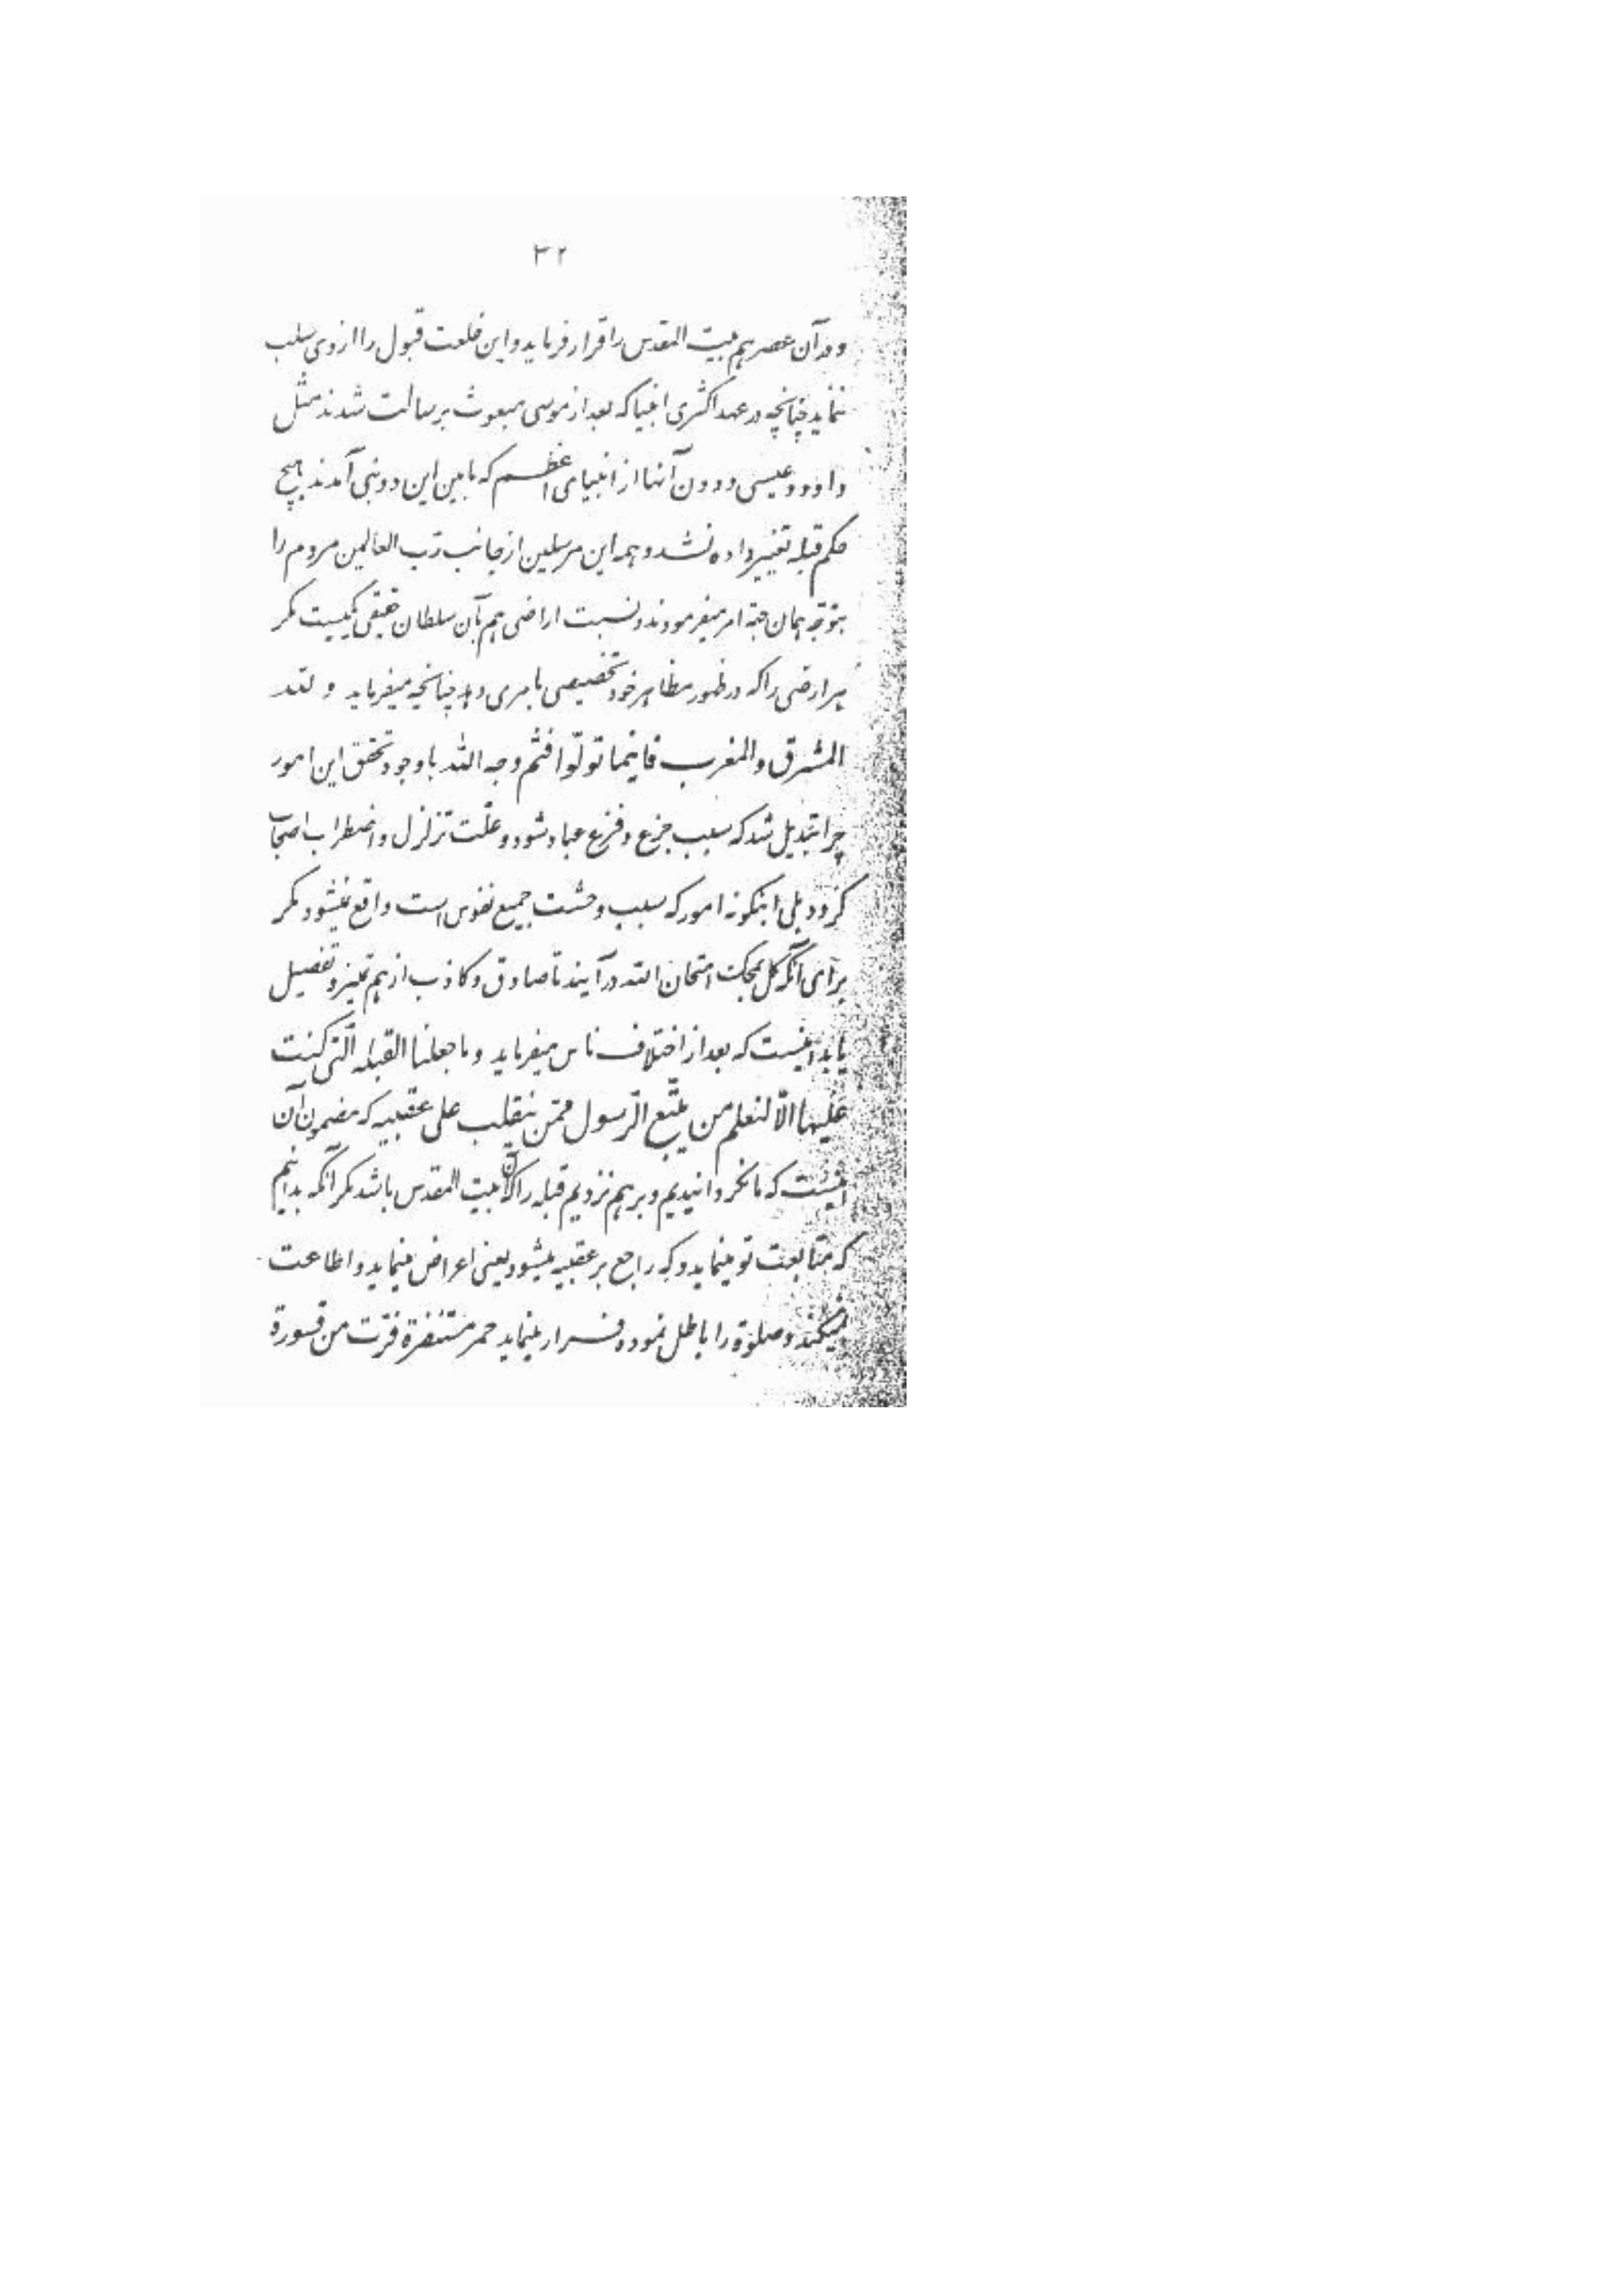 ۳۲
و در آن عصر هم بیت المقدس را قرار فرماید و این خلعت قبول را از وی سلب
ننماید چنانچه در عهد اکثری انبیا که بعد از موسی مبعوث برسالت شدند مثل
داود و عیسی و دون آنها از انبیای اعظم که مابین این دو نبی آمدند هیچ
حکم قبله تغییر داده نشد و همه این مرسلین از جانب ربّ العالمین مردم را
بتوجّه همان جهة امر میفرمودند و نسبت اراضی هم بآن سلطان حقیقی یکیست مگر
هر ارضی را که در ظهور مظاهر خود تخصیص بامری دهد چنانچه میفرماید و لله
المشرق و المغرب فاینما تولّوا فثم وجه الله باوجود تحقق این امور
چرا تبدیل شد که سبب جزع و فزع عباد شود و علّت تزلزل و اضطراب اصحاب
گردد بلی اینگونه امور که سبب وحشت جمیع نفوس است واقع نمیشود مگر
برای آنکه کلّ بمحکّ امتحان الله درآیند تا صادق و کاذب از هم تمیز و تفصیل
یابد اینست که بعد از اختلاف ناس میفرماید و ما جعلنا القبله الّتی کنت
علیها الّا لنعلم من یتّبع الرّسول ممّن ینقلب علی عقبیه که مضمون آن
اینست که ما نگردانیدیم و برهم نزدیم قبله را که آن بیت المقدس باشد مگر آنکه بدانیم
که متابعت تو مینماید و که راجع بر عقبیه میشود یعنی اعراض مینماید و اطاعت
نمیکند و صلوة را باطل نموده فرار مینماید حمر مستنفرة فرّت من قسورة